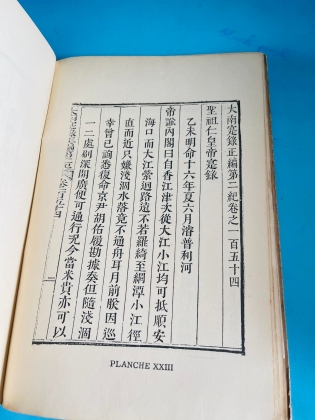 大南寔錄正編第二紀卷之一百五十四
聖祖仁皇帝寔錄
乙未明命十六年夏六月濬普利河
帝諭內閣曰自香江津次從大江小江均可抵順安
海口而大江縈迴路遠不若羅綺至網潭小江徑
直而近只嫌淺涸水落竟不通舟耳月前朕因巡
幸曾已諭悉復命京尹胡佑履勘據奏但隨淺涸
一二處剮深開廣便可通行況今當米貴亦可以
PLANCHE XXIII